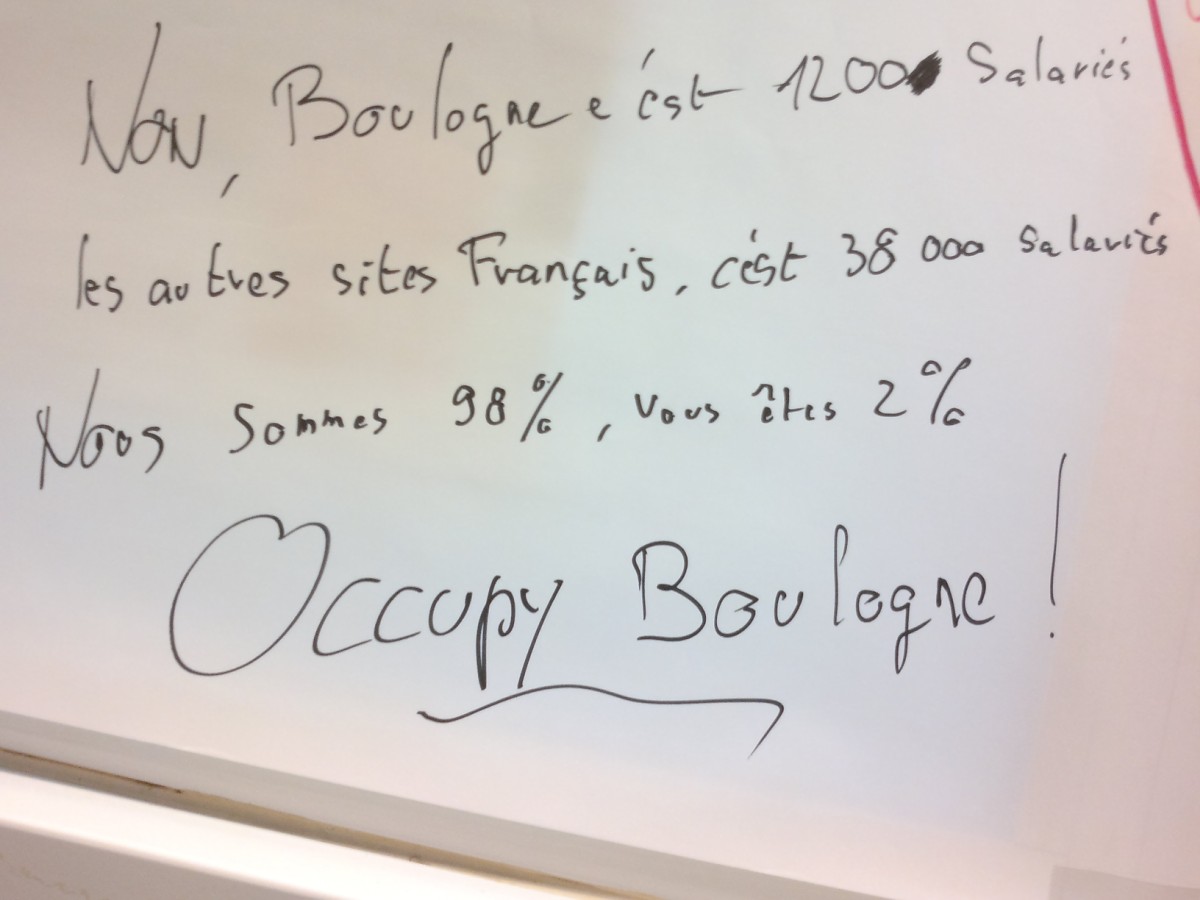 Non, Boulogne c'est 1200 Salariés
les autres sites Français, c'est 38 000 salariés
Nous sommes 98%, vous êtes 2%
Occupy Boulogne!